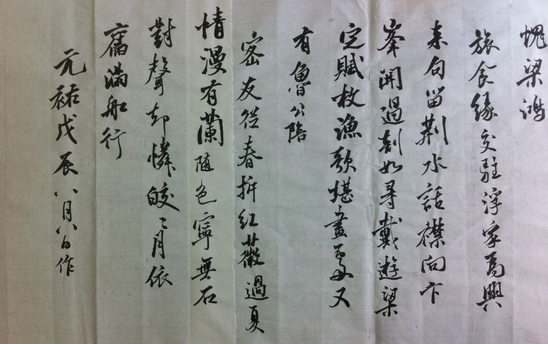 愧梁鴻
旅食緣交駐浮家為興
来句留荆水話襟向卞
峯開過剡如尋戴遊梁
定賦枚漁歌堪畫處又
有魯公陪
密友從春拆紅薇過夏
情漫有蘭隨色寧無石
對聲却憐皎〻月依
舊滿船行
元祐戊辰八月八日作